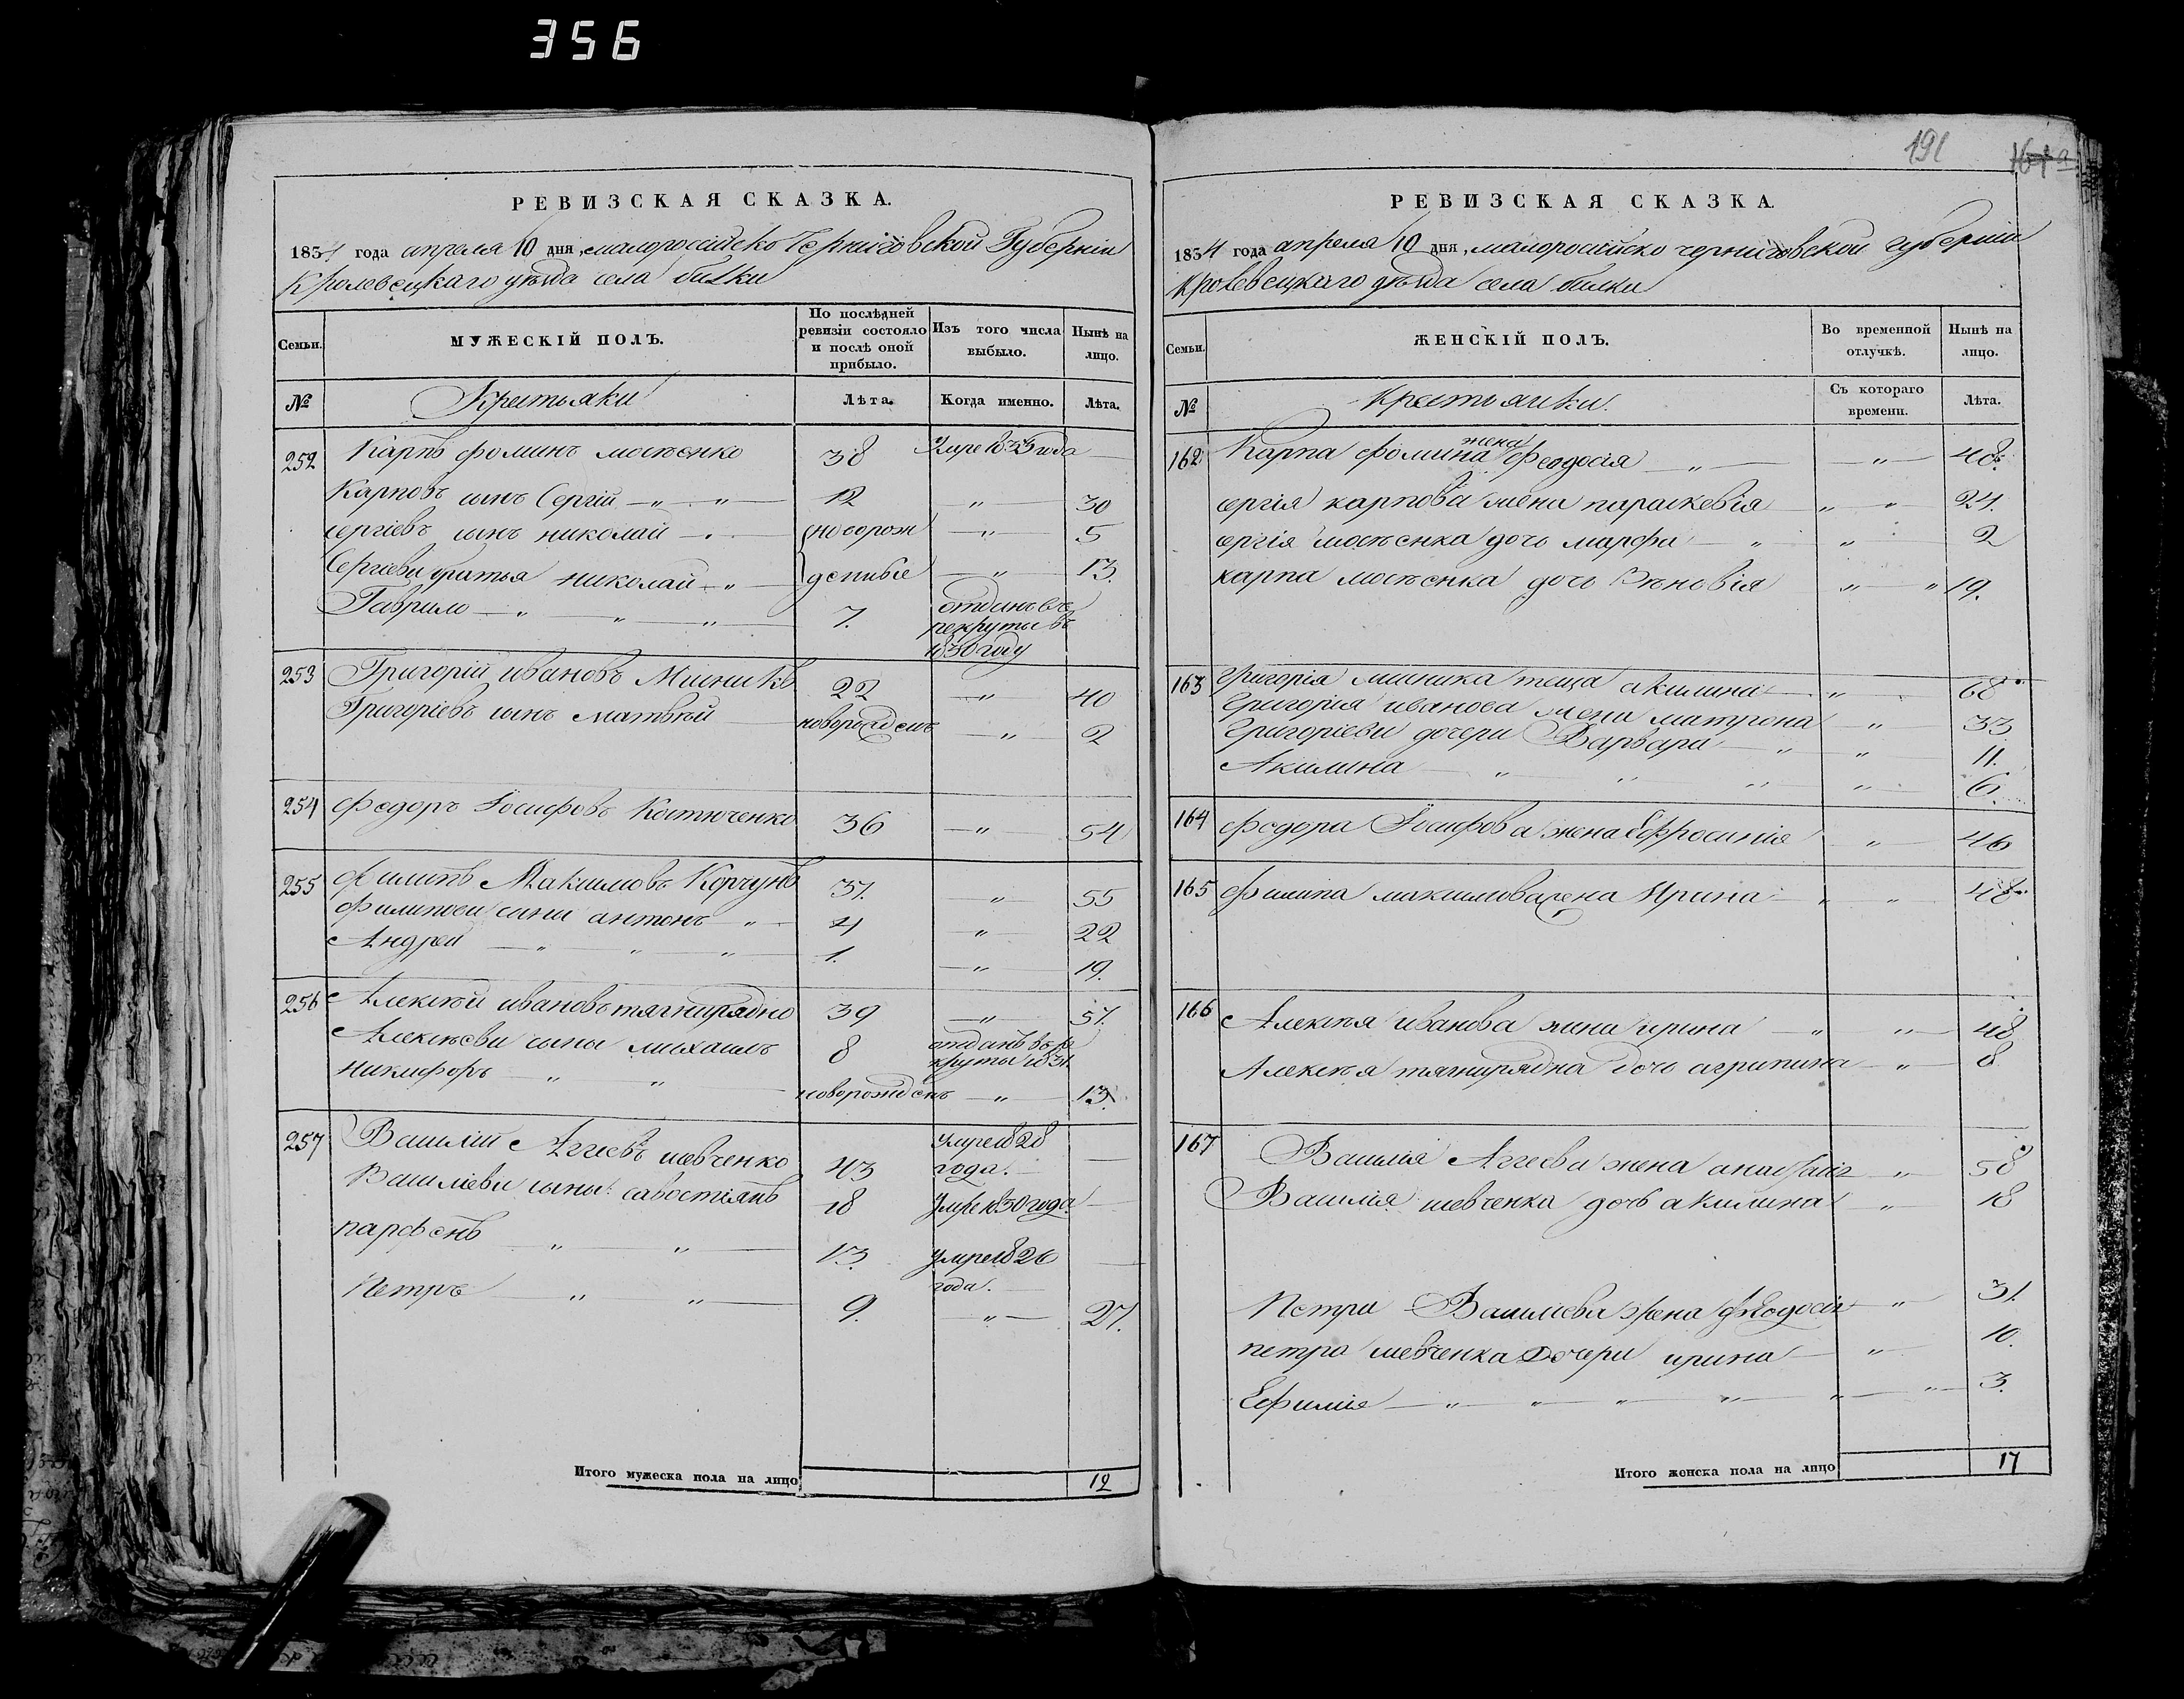 356
191
РЕВИЗСКАЯ СКАЗКА.
1834 года апреля 10 дня, малоросійско Черниговской Губерніи
Кролевецкаго уѣзда села билки
Семьи.
МУЖЕСКІЙ ПОЛЪ.
По послѣдней ревизіи состояло и послѣ оной прибыло.
Изъ того числа выбыло.
Нынѣ на лицо.
№
Лѣта.
Когда именно.
Лѣта.
252 Карпъ фоминъ 38 Умре 1835 года —
Карповъ сынъ Сергій — " — " — 12 — " — 30
сергіевъ сынъ николай — новорож — " — 5
Сергіеви братья николай — " — денные — " — 13.
Гаврило — " — " — " — 7. отданъ въ
рекруты въ
1830 году
253 Григорій ивановъ 22 — " — 40
Григоріевъ сынъ матвѣй новорожденъ — " — 2
254 федоръ Іосифовъ Костюченко 36 — " — 54
255 филипъ Максимовъ Корчунъ 37. — " — 55
филипови сини антонъ — " — 4 — " — 22
Андрей — " — " — " — 1. — " — 19.
256 Алексѣй ивановъ тягнирядно 39 — " — 57.
Алексѣеви сыны михаилъ 8 отданъ въ ре
круты 1831
никифоръ — " — " — новорожденъ — " — 13.
257 Василій Аггеевъ шевченко 43 умре 1828
года. —
Василіеви сыны: савостіянъ 18 Умре 1830 года —
парфенъ — " — " — 13. умре 1826
года. —
Петръ — " — " — 9. — " — 27.
Итого мужеска пола на лицо 12
РЕВИЗСКАЯ СКАЗКА.
1834 года апреля 10 дня, малоросійско черниговской губерніи
кролевецкаго уѣзда села билки
Семьи.
ЖЕНСКІЙ ПОЛЪ.
Во временной отлучкѣ.
Нынѣ на лицо.
№
Съ котораго времени.
Лѣта.
162 Карпа фомина жена Феодосія — " — — " — 48.
сергія карпова жена параскевія " — " 24.
сергія дочь марфа — " " 2
карпа дочь Зѣновія " — " 19.
163 григорія теща акилина — " 68
Григорія иванова жена матрона " — 33
Григоріеви дочери Варвара — " " 11.
Акилина — " " " " — 6.
164 федора Іосифова жена Ефросинія " — 46
165 филипа максимова жена Ирина — " " — 48
166 Алексѣя иванова жина ирина — " " — 48
Алексѣя тягнирядна дочь агрипина — " — 8
167 Василія Аггеева жена — " — 58
Василія шевченка дочь акилина " — 18
Петра Василіева жена феодосія — " — 31.
петра шевченка дочери ирина — " — 10.
Ефимия — " — " — " — " — " — " — 3.
Итого женска пола на лицо 17